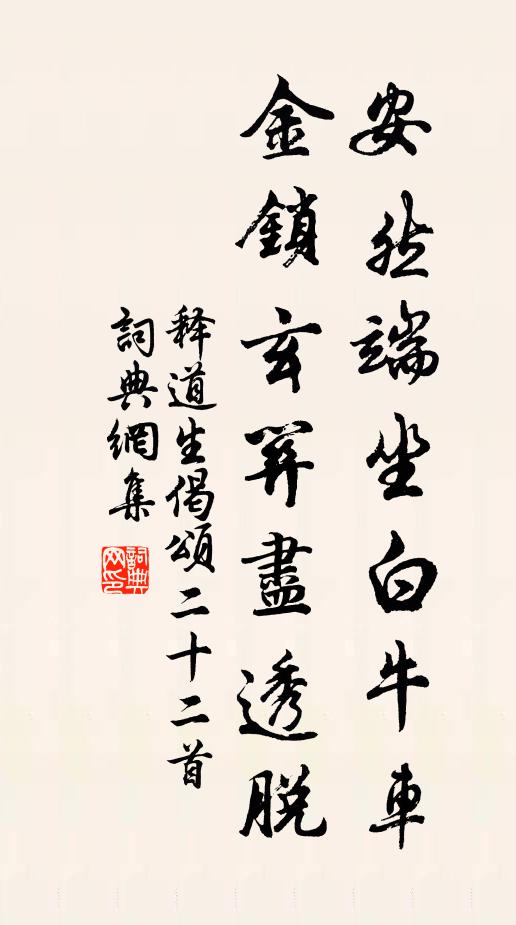 安然端坐白牛車
金鎖玄關盡透脫
释道生偈頌二十二首
詞典網集
詞典网印